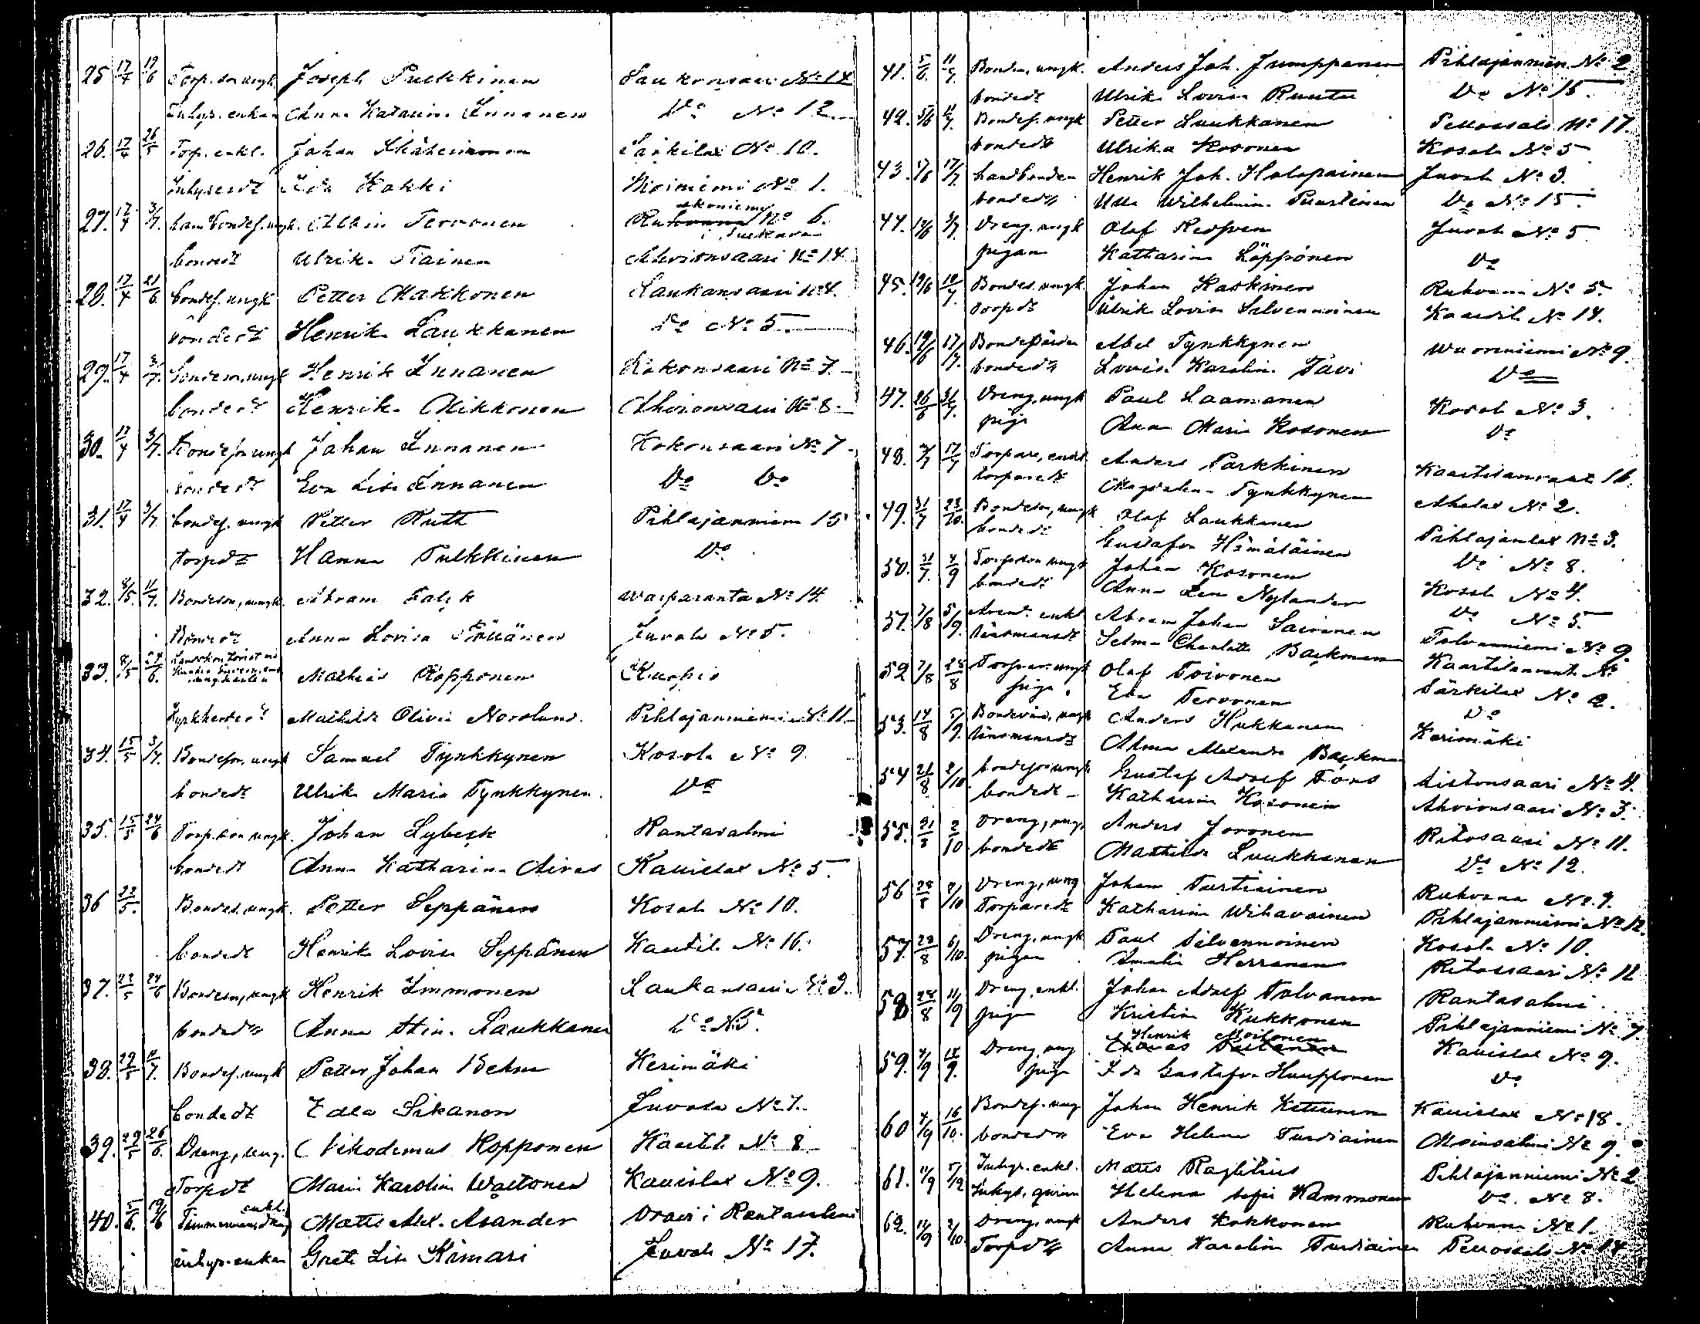 25 17/4 19/6 Torp.son ungk. Joseph Pulkkinen Laukansaari No 14
Inhys. enkan Anna Katarina Innanen Do No 12
26. 17/4 26/5 Torp. enkl. Johan Särkilax No 10.
Inhysesdt Ida Kakki Moinniemi No 1.
27. 17/4 3/7. Albin Tervonen No 6.
bondedt Ulrika Tiainen Ahvionsaari No 14
28. 17/4 21/6 bondes. ungk Petter Makkonen Laukansaari No 4.
bondedt Henrika Laukkanen Do No 5.
29. 17/4 3/7. bondeson, ungk Henrik Innanen Kokonsaari No 7.
bondedt Henrika Mikkonen Ahvionsaari No 8.
30. 17/4 3/7. bondeson ungk Johan Innanen Kokonsaari No 7
bondedt Eva Lisa Innanen Do Do
31. 17/4 3/7 bondes. ungk Petter Rutt Pihlajanniemi 15
torpdt Hanna Pulkkinen Do
32. 8/5. 11/7. Bondeson, ungk. Abram Falck Warparanta No 14.
Bondedt Anna Lovisa Juvola No 5.
33. 8/5 24/6. Mathias Kopponen Kuopio
Mathilda Olivia Norslund. Pihlajanniemi No 11
34. 15/5 3/7. Bondeson, ungk Samuel Tynkkynen Kosola No 9.
bondedt Ulrika Maria Tynkkynen. Do
35. 15/5 24/6 Torp.son ungk. Johan Lybeck Rantasalmi
bondedt Anna Katharina Aivas Kauvislax No 5.
36 22/5. Bondes. ungk. Petter Seppänen Kosola No 10.
bondedt Henrika Lovisa Seppänen Kaartila No 16.
37. 22/5 24/6 Bondeson, ungk Henrik Immonen Laukansaari No 3.
bondedr Anna Stina Laukkanen Do No 5.
38. 29/5 11/7. Bondes. ungk Petter Johan Behm Kerimäki
bondedt Edla Sikanen Juvola No 7.
39. 29/5 26/6. Dreng, ung. Nikodemus Kopponen Kaartila No 8
Torpdt Maria Karolina Waltonen Kauvislax No 9.
40. 5/6. 19/6 enkl. Matts Alex. Asander Rantasalmi
inhys. enkan Greta Lisa Kimari Juvola No 17.
41. 5/6. 11/7. Bondes, ungk. Anders Joh. Jumppanen Pihlajanniem. No 2
bondedt Ulrika Lovisa Ruuta Do No 15.
42. 5/6 11/7. Bondes. ungk Petter Luukkanen Pellossalo No 17.
bondedt Ulrika Kosonen Kosola No 5
43. 17/7. Henrik Joh. Holopainen Juvola No 3.
bondedr Ulla Wilhelmina Puustinen Do No 15.
44. Dreng. ungk Olof Redsven Juvola No 5
pigan Katharina Löppönen Do
45. 19/6 Bondes. ungk. Johan Kaskinen Ruhvana No 5.
torpdt Ulrika Lovisa Silvennoinen Kaartila No 14.
46. 19/6 17/7. Abel Tynkkynen Wuoriniemi No 9
bondedr Lovisa Karolina Tavi Do
47. 26/6 31/7. Dreng, ungk Paul Laamanen Kosola No 3.
piga Anna Maria Kosonen Do
48. 17/7 Torpare, enkl. Anders Parkkinen Kaartilanranta 16.
torparedt Magdalena Tynkkynen Ahalax No 2.
49. 31/7 23/10. Bondeson, ungk Olof Laukkanen Pihlajanlax No 3.
bondedt Gustafva Hämäläinen Do No 8.
50. 31/7. 4/9 Torpson ungk Johan Kosonen Kosola No 4.
bondedt Anna Lena Nylander Do No 5.
51. 7/8 5/9. enkl Abram Johan Sairanen Tolvanniemi No 9
länsmansdt Selma Charlotta Backman Kaartilanranta No
52 7/8 28/8 Torpar. ungk Olof Toivonen Särkilax No 2.
piga. Eva Tervonen Do
53. 14/8 5/9. ungk Anders Hukkanen Kerimäki
länsmansdt Alma Alexandra Backman
54 21/8. 2/10. bondeson ungk Gustaf Adolf Fors Liistonsaari No 4.
bondedt Katharina Kosonen Ahvionsaari No 3.
55. 21/8 2/10 Dreng, ung. Anders Joronen Ritosaari No 11.
bondedt Mathilda Luukkanen Do No 12.
56 28/8 2/10 Dreng, ung Johan Turtiainen Ruhvana No 9.
Torparedt Katharina Wihavainen Pihlajanniemi No 12.
57. 28/8 6/10. Dreng, ungk Paul Silvennoinen Kosola No 10.
pigan Amalia Herranen Ritosaari No 12
58 28/8 11/9 Dreng, enkl. Johan Adolf Tolvanen Rantasalmi
piga Kristina Kukkonen Pihlajanniemi No 7.
59. 4/9 18/9. Dreng, ung Henrik Moilanen Kauvislax No 9.
piga Ida Gustafva Huupponen Do
60 4/9 16/10. Bondes. ung Johan Henrik Kettunen Kauvislax No 18.
bondedtr Eva Helena Turtiainen Moinsalmi No 9
61. 11/9 Inhys. enkl. Matts Raglitius Pihlajanniemi No 2
Inhys. qvinn Helena Sofia Hammonen Do. No 8.
62. 11/9 2/10. Dreng, ungk Anders Kokkonen Ruhvana No 1.
Torpdtr Anna Karolina Turtiainen Pellossalo No 14